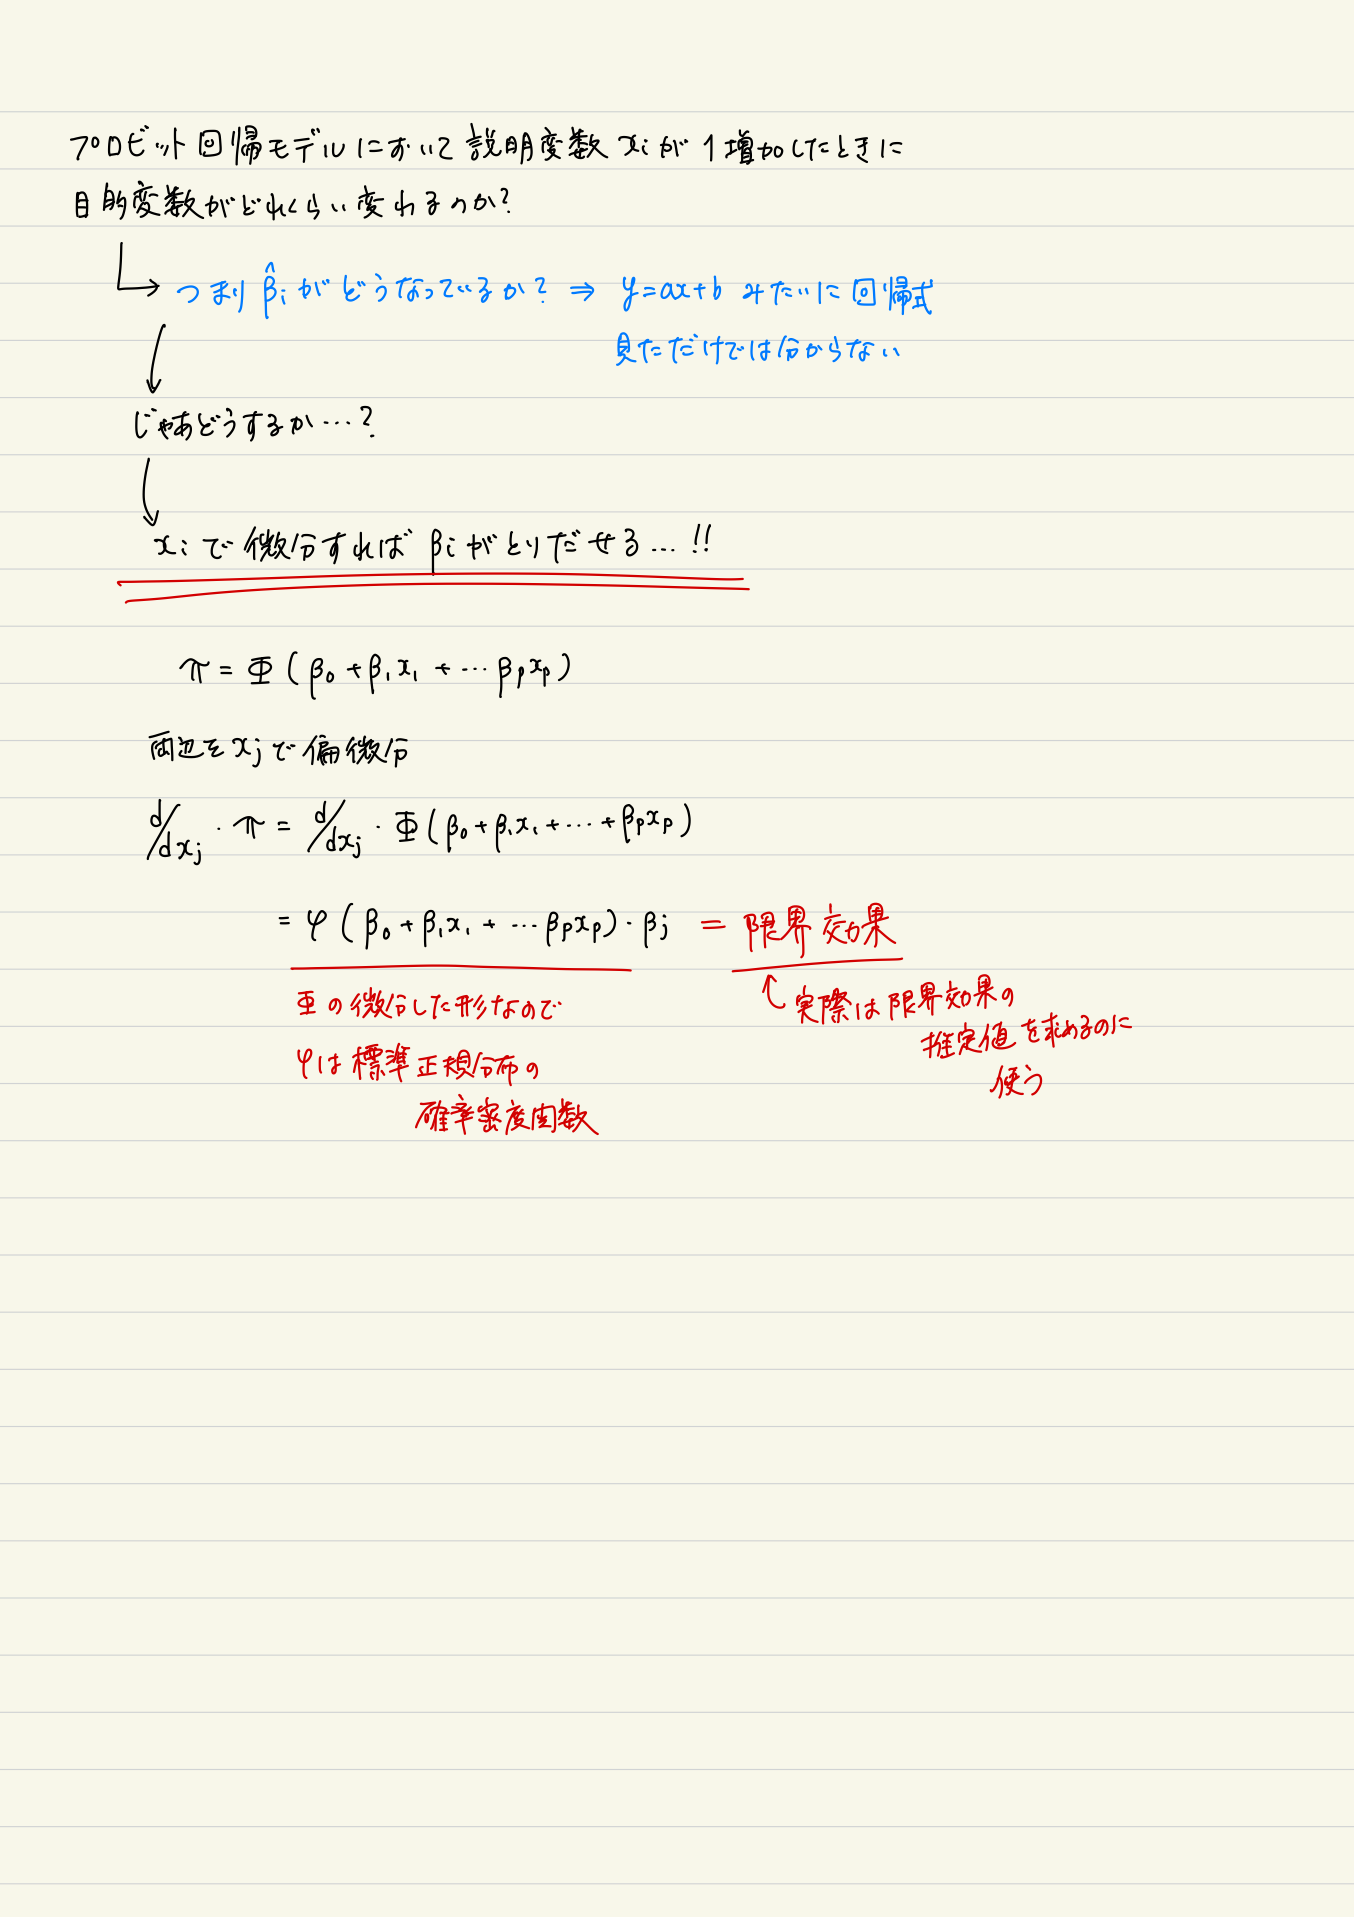 プロビット回帰モデルにおいて説明変数 xi が 1増加したときに
目的変数がどれくらい変わるのか?
つまり β̂i がどうなっているか? ⇒ y=ax+b みたいに回帰式
見ただけでは分からない
じゃあどうするか…?
xi で微分すれば βi がとりだせる…!!
π = Φ ( β₀ + β₁x₁ + … βpxp )
両辺を xj で偏微分
d/dxj · π = d/dxj · Φ ( β₀ + β₁x₁ + … + βpxp )
= φ ( β₀ + β₁x₁ + … βpxp ) · βj = 限界効果
Φ の微分した形なので
φは標準正規分布の
確率密度関数
実際は限界効果の
推定値を求めるのに
使う